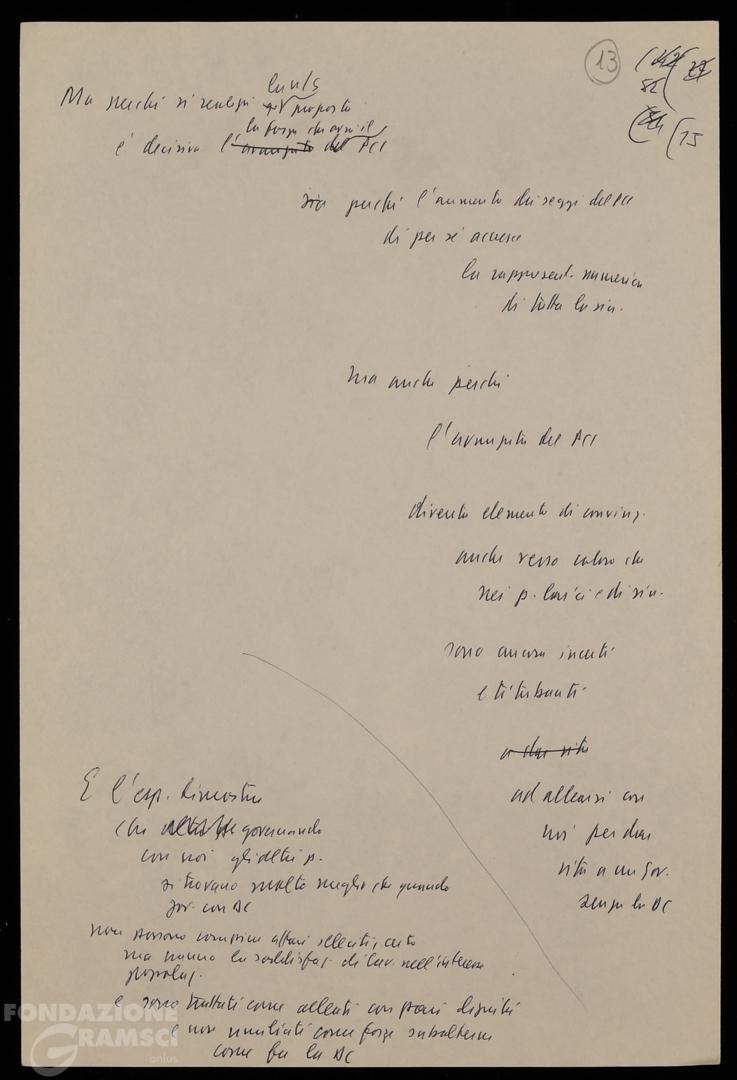 13
82
15
Ma perché si realizzi la n/s proposta
è decisiva la forza che avrà il PCI
sia perché l'aumento dei seggi del PCI
di per sé accresce
la rappresent. numerica
di tutta la sin.
ma anche perché
l'avanzata del PCI
diventa elemento di convinz.
anche verso coloro che
nei p. laici e di sin.
sono ancora incerti
e titubanti
a dar vita
ad allearsi con
noi per dar
vita a un gov.
senza la DC
E l'esp. dimostra
che governando
con noi gli altri p.
si trovano molto meglio che quando
gov. con DC
non possono compiere affari illeciti, certo
ma hanno la soddisfaz. di lav. nell'interesse
popolaz.
e sono trattati come alleati con pari dignità
e non umiliati come forze subalterne
come fa la DC
FONDAZIONE
GRAMSCI
onlus